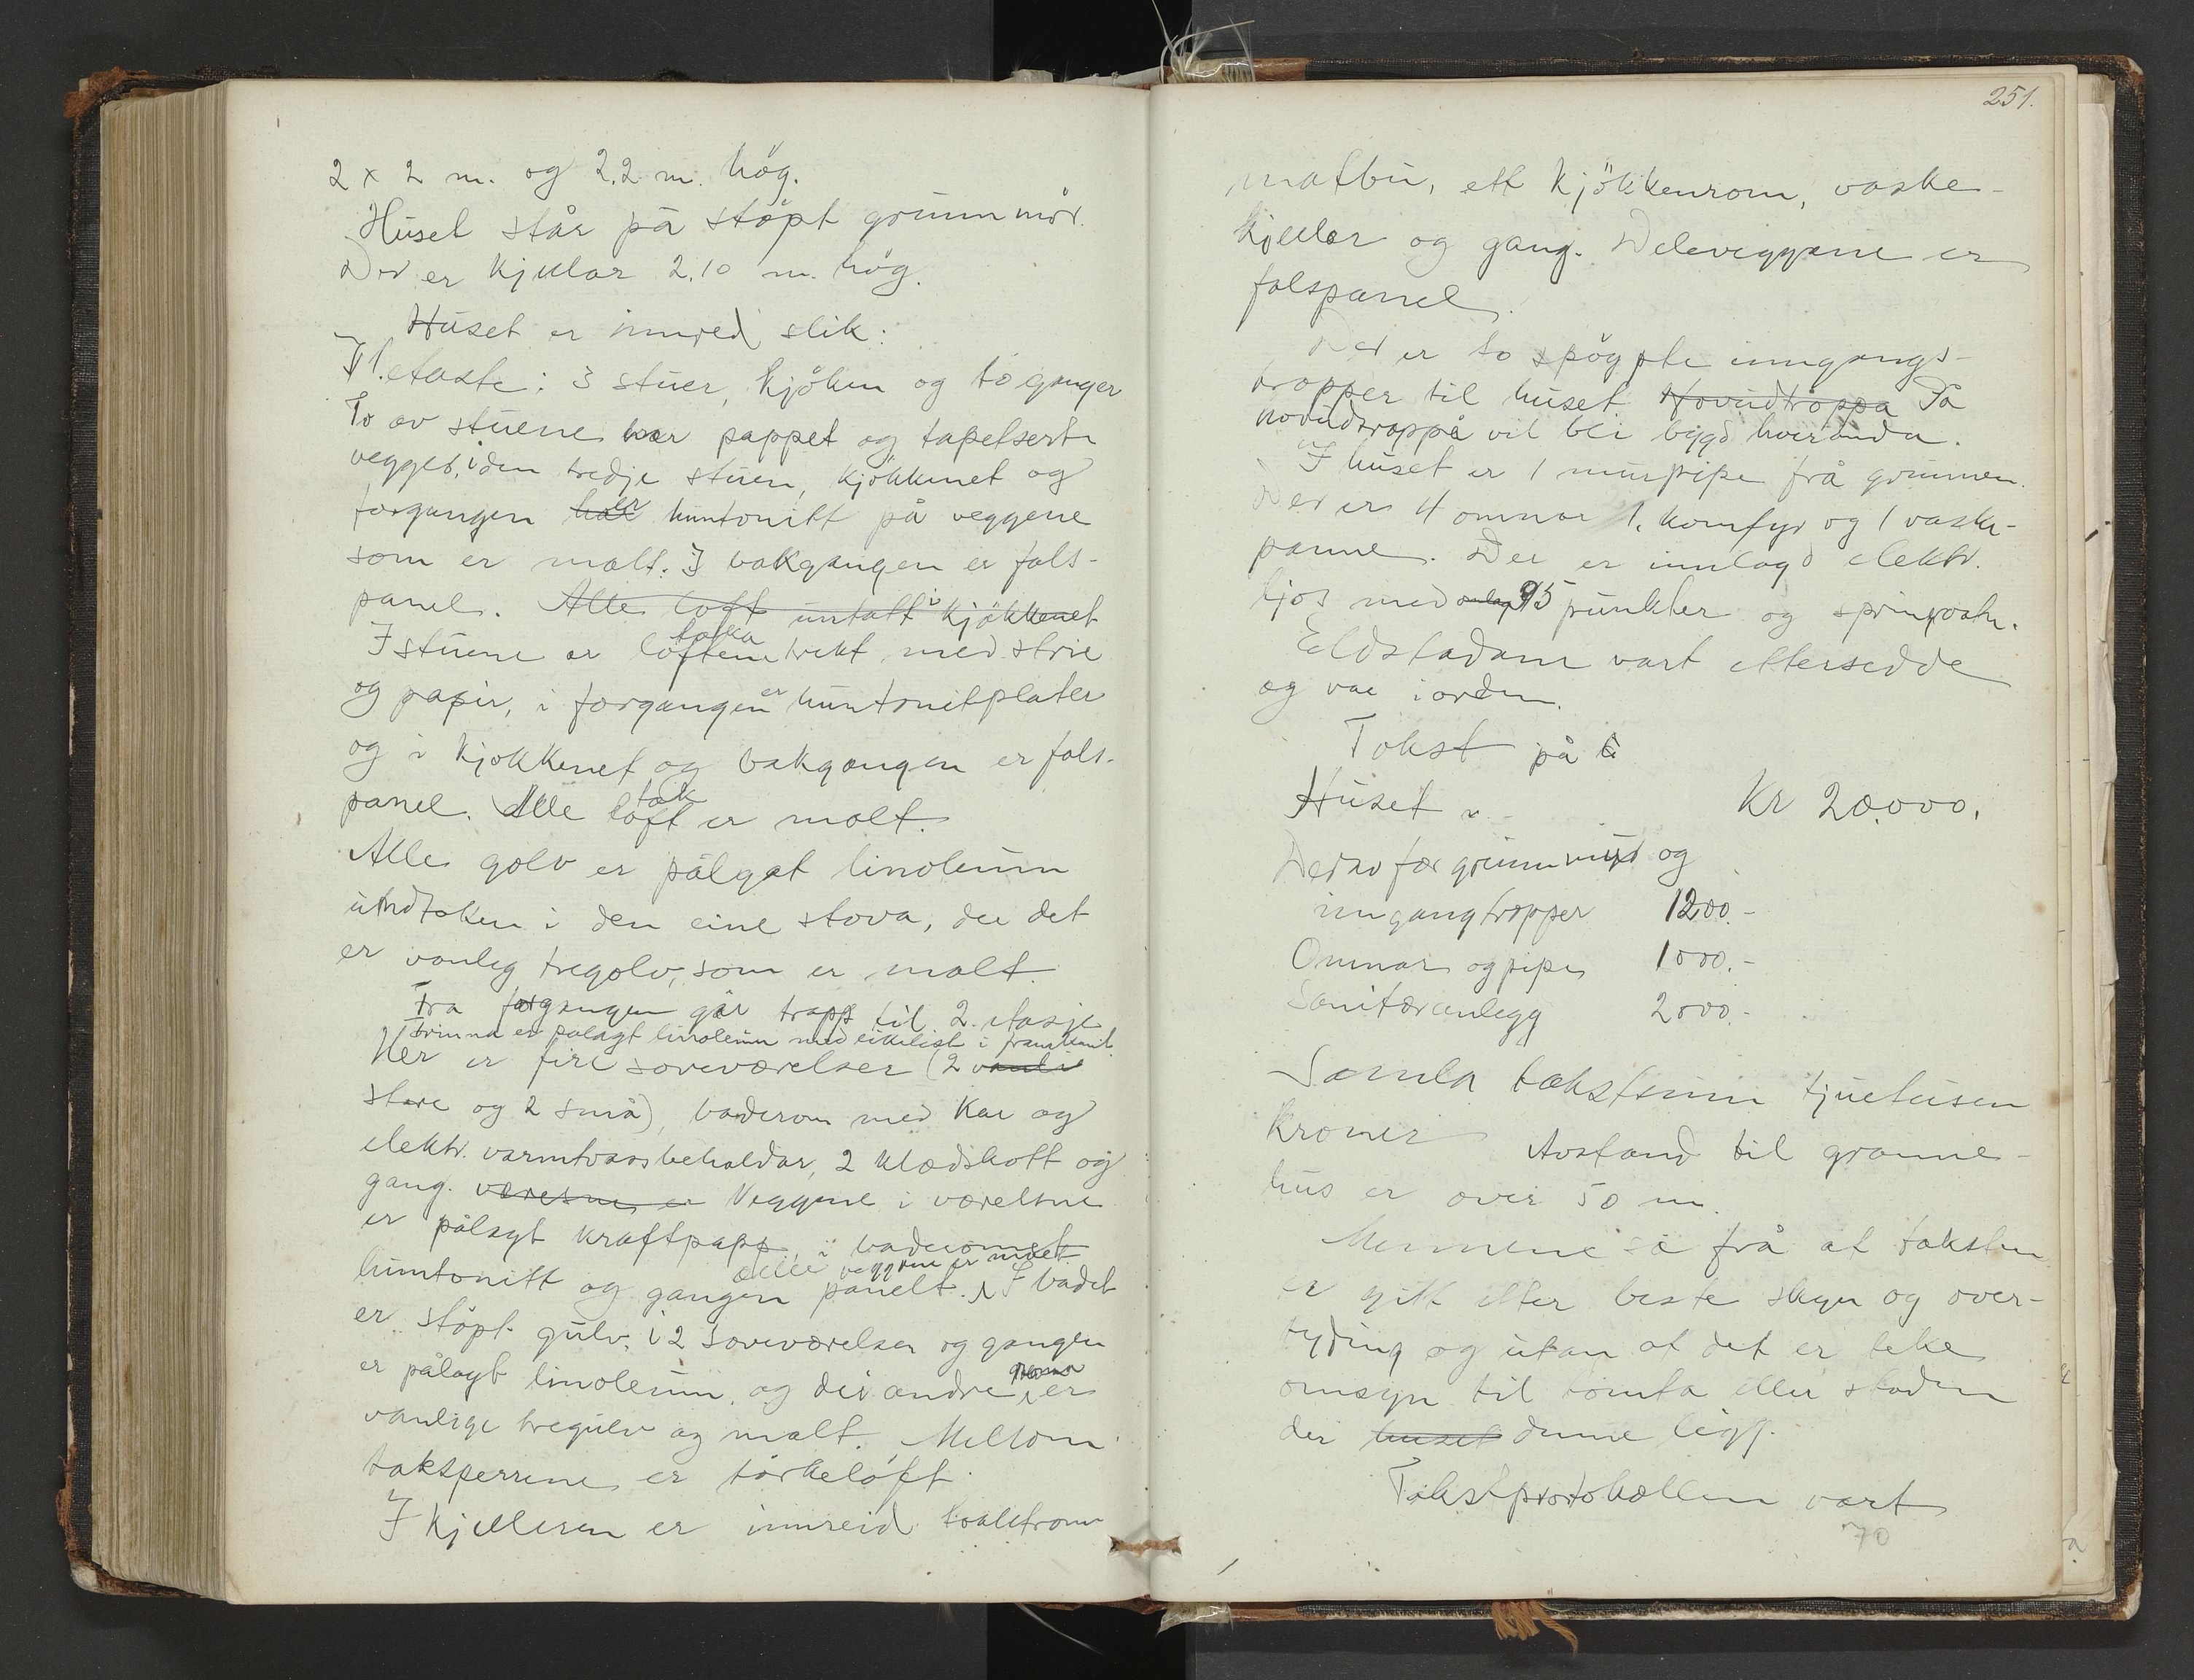 2 x 2 m. og 2,2 m. høg.
Huset står på støpt grunnmur.
Der er kjellar 2.10 m. høg.
Huset er innred slik:
I 1. etasje: 3 stuer, kjøken og to ganger
To av stuene har pappet og tapetserte
vegger, i den tredje stuen, kjøkkenet og
forgangen har er huntonitt på veggene
som er malt. I bakgangen er fals-
panel. Alle loft untatt i kjøkkenet
I stuene er loftene taka trekt med strie
og papir, i forgangen er huntonitplater
og i kjøkkenet og bakgangen er fals-
panel. Alle loft tak er malt.
Alle golv er pålagt linoleum
undtaken i den eine stova, der det
er vanleg tregolv, som er malt.
Fra forgangen går trapp til 2. etasje
Trinna er pålagt linoleum med eikelist i framkant.
Her er fire soveværelser (2
store og 2 små), baderom med kar og
elektr. varmtvassbeholdar, 2 klædskott og
gang. værelsene er Veggene i værelsene
er pålagt kraftpapp, i baderomet
huntonitt og gangen panelt. Alle veggene er målet. I badet
er støpt gulv, i 2 soveværelser og gangen
er pålagt linoleum, og dei andre romma er
vanlige tregulv og malt. Mellom
taksperrene er tørkeloft.
I kjelleren er innreid toaletrom
251.
matbu, ett kjøkkenrom, vaske-
kjeller og gang. Deleveggane er
falspanel.
Der er to støypte inngangs-
trapper til huset Hovudtrappa På
hovudtrappa vil bli bygd veranda.
I huset er 1 murpipe frå grunnen.
Der er 4 omnar 1. komfyr og 1 vaske-
panne. Der er innlagd elektr.
ljos med 95 punkter og springvatn.
Eldstadane vart ettersedde
og var i orden.
Takst på
Huset Kr 20.000.
Derav for grunnmur og
inngangtrapper 1200.-
Omnar og pipe 1000.-
Sanitæranlegg 2000.-
Samla takstsum tjuetusen
kroner Avstand til granne-
hus er over 50 m.
Mennene sa frå at taksten
er gitt etter beste skyn og over-
tyding og utan at det er teke
omsyn til tomta eller staden
der huset denne ligg.
Takstprotokollen vart
70